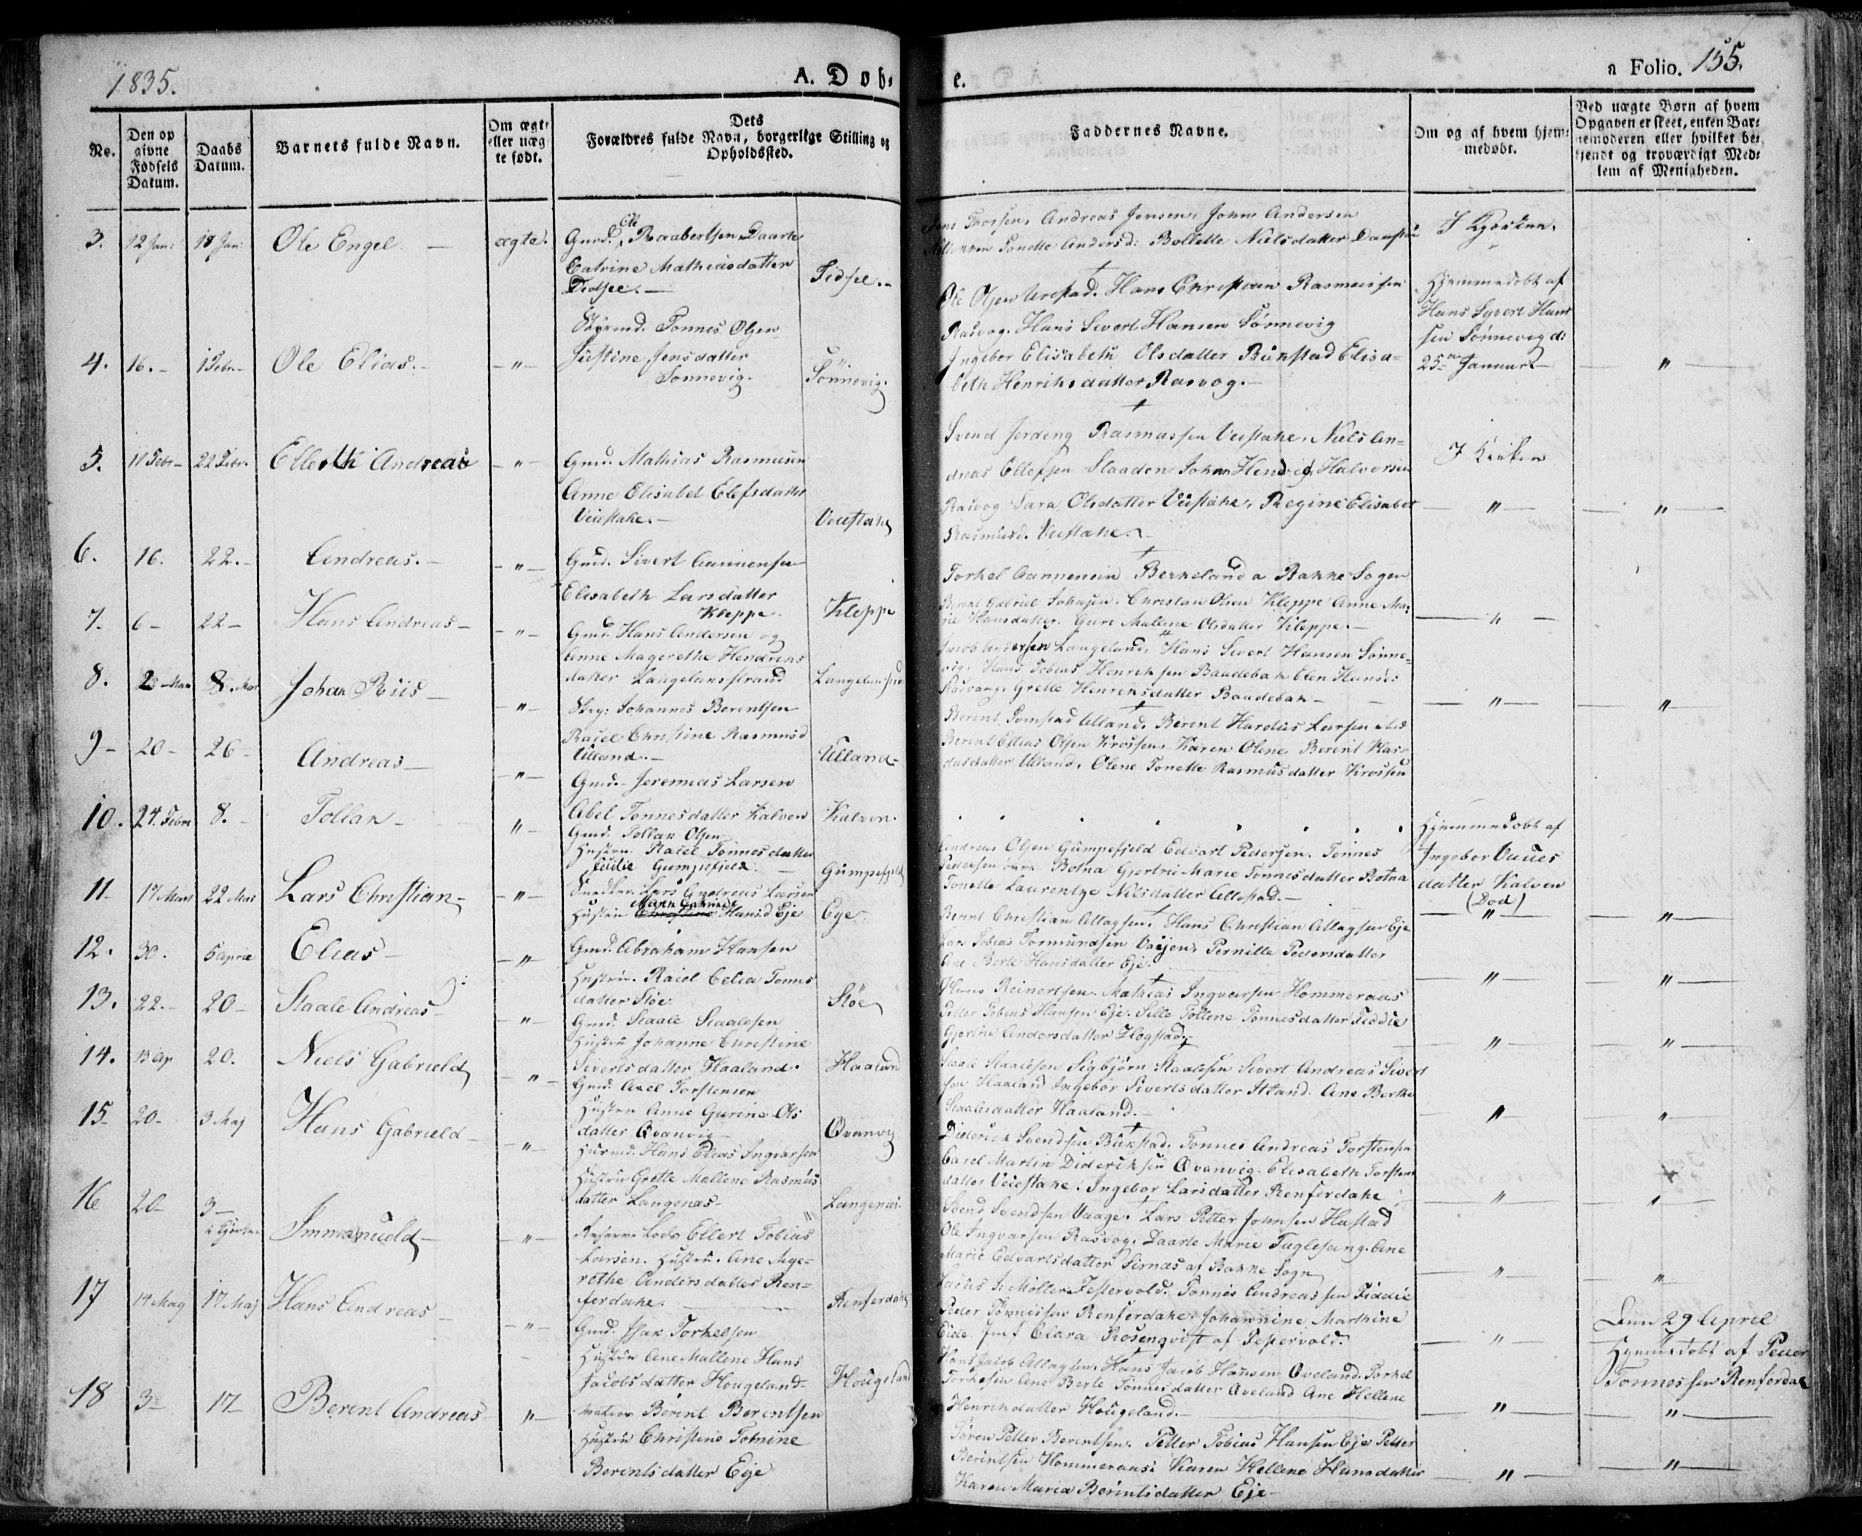 1835.
A. Døb-
e.
a Folio. 155.
No.
Den op
givne
Fødsels
Datum.
Daabs
Datum.
Barnets fulde Navn.
Om ægte
eller uæg
te født.
Dets
Forældres fulde Navn, borgerlige Stilling og
Opholdssted.
Faddernes Navne.
Om og af hvem hjem-
medøbt.
Ved uægte Børn af hvem
Opgaven er skeet, enten Bar-
nemoderen eller hvilket be-
kjendt og troværdigt Med-
lem af Menigheden.
3. 12 Jan: 18 Jan: Ole Engel. — ægte.
Gmd. Ole Raabertsen Daarte
Catrine Mathiasdatter
Tidsee. — Fidsel.
Thorsen, Andreas Jensen, John Andersen
Tonette Andersd: Bollette Nielsdatter
I Kjørken.
4. 16. — 1 Febr. — Ole Elias. — — " —
Tonnes Olsen
Justine Jensdatter
Sønnevig. Sønnevig.
Ole Olsen Urestad. Hans Christian Rasmussen
Rasvog. Hans Sivert Hansen Sønnevig
Ingebor Elisabeth Olsdatter Bukstad Elisa-
beth Henriksdatter Rasvog. —
Hjemmedøbt af
Hans Syvert Han-
sen Sønnevig d:
25 Januar — — " —
5. 11 Febr — 22 Febr. Elleoth Andreas — " —
Gmd. Mathias Rasmusen
Anne Elisabet Elefsdatter
Veistake. —
Svend Rasmussen Veistake. Niels An-
dreas Ellefsen Staaden Johan Hendrich Halvorsen
Rasvog Sara Olsdatter Veistake, Regine Elisabet
Rasmusd. Veistake.
I Kirken
— " — — " —
6. 16. 22. — Andreas. — — " —
Gmd. Sivert Aanensen
Elisabeth Larsdatter
Kleppe. Kleppe
Torkel Aannensen Berkeland a Bakke Sogen
Berent Gabriel Johnsen. Christan Olsen Kleppe Anne Ma-
rie Hansdatter. Guri Mallene Olsdatter Kleppe. —
— " —
7. 6 — 22 — Hans Andreas — — " —
Gmd. Hans Andersen og
Anne Magrethe Hendriks
datter Langelandstrand
Jacob Andersen Langeland, Hans Sivert Hansen Sønne-
vig. Hans Tobias Henriksen Baadebak Elen Hansd.
Grette Henriksdatter Baadebak —
— " — — " —
8. 8. Mar Johan Riis — — " —
Johannes Berentsen
Raiel Christine Rasmusd
Ulland. — Ulland —
Berent Tomstad Ulland. Berent Hardus Larsen
Berent Elias Olsen Krossen. Karen Olene Berent Har-
dusdatter Ulland. Olene Tonette Rasmusdatter Krossen
9 — 20 — 26 — Andreas — — " —
Gmd. Jeremias Larsen
Abel Tonnesdatter Kalven Kalven.
Hjemmedøbt af
Ingebor Aanes
datter Kalven
(Død)
10. 24. Febr 8. — Tollak — " —
Gmd. Tollak Olsen
Hustru. Raiel Tonnesdatter
Gumpefjeld. — Gumpefjeld
Andreas Olsen Gumpefjeld Edvart Pedersen. Tønnes
Pedersen Botna Gjertru Marie Tonnesdatter Botna
Tonette Laurentze Nilsdatter Allestad. —
— " — — " —
11 — 17 Mart 22 Mar Lars Christian — — " —
Lars Andreas Larsen
Hustru Hansd Eje Eye —
Berent Christian Attagsen. Hans Christian Attagsen Eje
Lars Tobias Tormundsen Pernille Pedersdatter
Ane Berte Hansdatter Eje.
— " — — " —
12. 30. 5 April Elias — — " —
Gmd. Abraham Hansen
Hustru. Raiel Celia Tonnes
datter Støe Støe
Hans Reinertsen. Mathias Ingvarsen Hommeraas
Petter Tobias Hansen Eje. Sille Tollene Tonnesdatter Fiddie
Gjorine Andersdatter Flogstad
— " — — " —
13. 22. — 20 — Staale Andreas — — " —
Gmd. Staale Staalesen
Hustru Johanne Christine
Sivertsdatter Haaland. Haaland
Staale Staalesen Sigbjørn Staalesen Sivert Andreas Sivert
sen Haaland Ingebor Sivertsdatter Ane Berthe
Staalesdatter Haaland. —
" "
14. 13 Ap 20. Niels Gabrield " —
Gmd. Axel Torstensen
Hustru Anne Gurine Ols
datter Qvanvig — Qvanvig
Diderich Svendsen Bukstad. Tonnes Andreas Torstensen
Carel Martin Dideriksen Qvanvig. Elisabeth Torstens
datter Veistake. Ingebor Larsdatter Renferdahe
" "
15 — 20 — 3 Maj Hans Gabrield — — " —
Hans Elias Ingvarsen
Hustru Grette Mallene Rasmus
datter Langenæs — Langenæs —
Svend Svendsen Vaage. Lars Petter Johnsen Hastad
Ole Ingvarsen Rasvog. Daarte Marie Fuglesang. Ane
Marie Edvartsdatter Sirnæs af Bakke Sogn
— " — — " —
16 20 — 3 — Immanueld — — " —
Lods Ellert Tobias
Larsen. Hustru. Ane Mag-
rethe Andersdatter Ren-
ferdahe. — Renferdahe
S. Møller Festervold. Tønnes Andreassen Fiddie
Peder Tønnessen Renferdahe. Johannine Marthine
Eide. Jmf Clara Rosenqvist af Festervold.
— " —
Den 29 April
Hjemmedøbt af Peder
Tonnessen Renferdahe
17 14 Maj 17 Maj Hans Andreas — — " —
Gmd. Isak Torkelsen
Hustru Ane Mallene Hans
Jacobsdatter Hougeland — Hougeland
Hans Jacob Attagsen. Hans Jacob Hansen Qveland. Torkel
Torkesen Ane Berte Tønnesdatter Qveland Ane Hellene
Henriksdatter Hougeland. —
— " — — " —
18 3 — 17 — Berent Andreas " —
Matros Berent Berentsen
Hustru Christine Tobnine
Berentsdatter Eye
Søren Petter Berentsen. Petter Tobias Hansen Eje Petter
Berentsen Hommeraas. Karen Hellene Hansdatter
Karen Maria Berentsdatter Eje —
— " — — " —